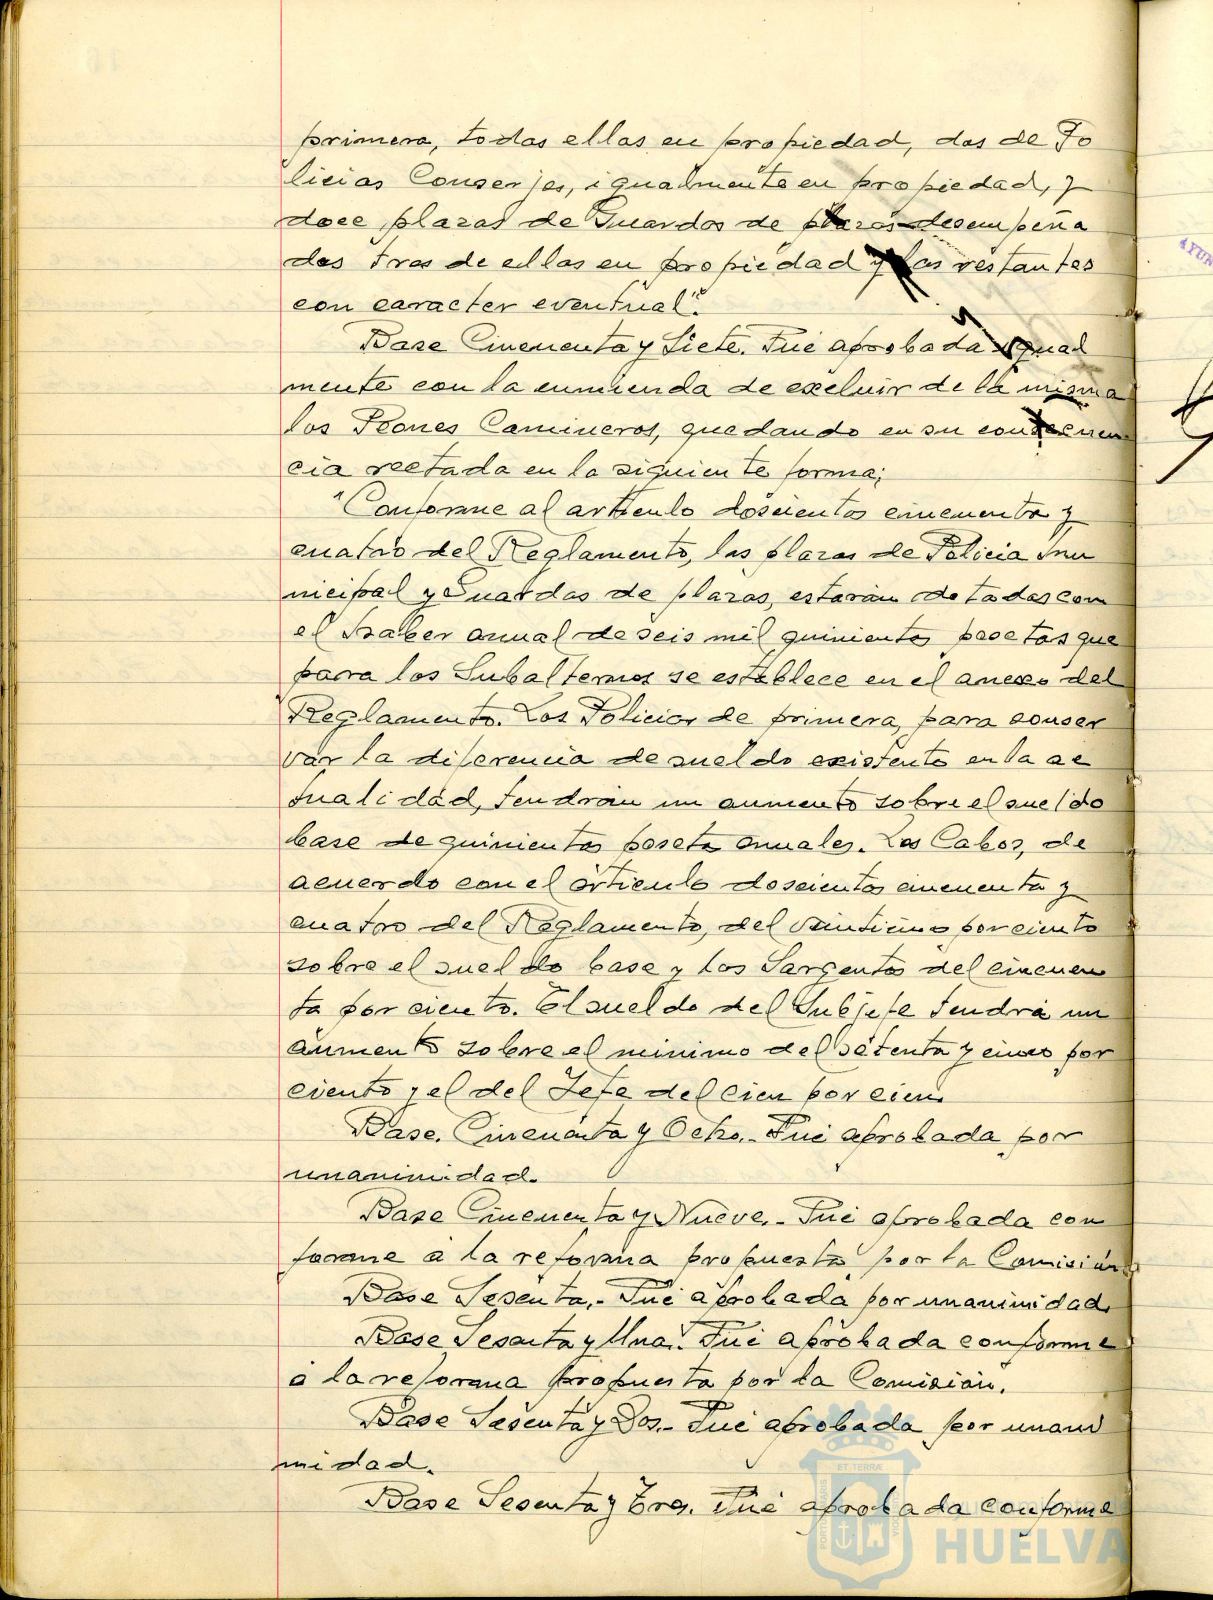 primera, todas ellas en propiedad, dos de Po
licias Conserjes, igualmente en propiedad, y
doce plazas de Guardas de plazas desempeña
das tres de ellas en propiedad y las restantes
con caracter eventual".
Base Cincuenta y Siete. Fué aprobada igual
mente con la enmienda de excluir de la misma
los Peones Camineros, quedando en su consecuen
cia rectada en la siguiente forma;
"Conforme al artículo doscientos cincuenta y
cuatro del Reglamento, las plazas de Policia Mu
nicipal y Guardas de plazas, estarán dotadas con
el haber anual de seis mil quinientas pesetas que
para los Subalternos se establece en el anexo del
Reglamento. Los Policias de primera, para conser
var la diferencia de sueldo existente en la ac
tualidad, tendrán un aumento sobre el sueldo
base de quinientas peseta anuales. Los Cabos, de
acuerdo con el artículo doscientos cincuenta y
cuatro del Reglamento, del veinticinco por ciento
sobre el sueldo base y los Sargentos del cincuen
ta por ciento. El sueldo del Subjefe tendrá un
aumento sobre el minimo del setenta y cinco por
ciento y el del Jefe del cien por cien.
Base. Cincuenta y Ocho.- Fué aprobada por
unanimidad.
Base Cincuenta y Nueve.- Fué aprobada con
forme á la reforma propuesta por la Comisión.
Base Sesenta.- Fué aprobada por unanimidad.
Base Sesenta y Una. Fué aprobada conforme
á la reforma propuesta por la Comisión.
Base Sesenta y Dos.- Fué aprobada por unani
midad.
Base Sesenta y Tres. Fué aprobada conforme
HUELVA